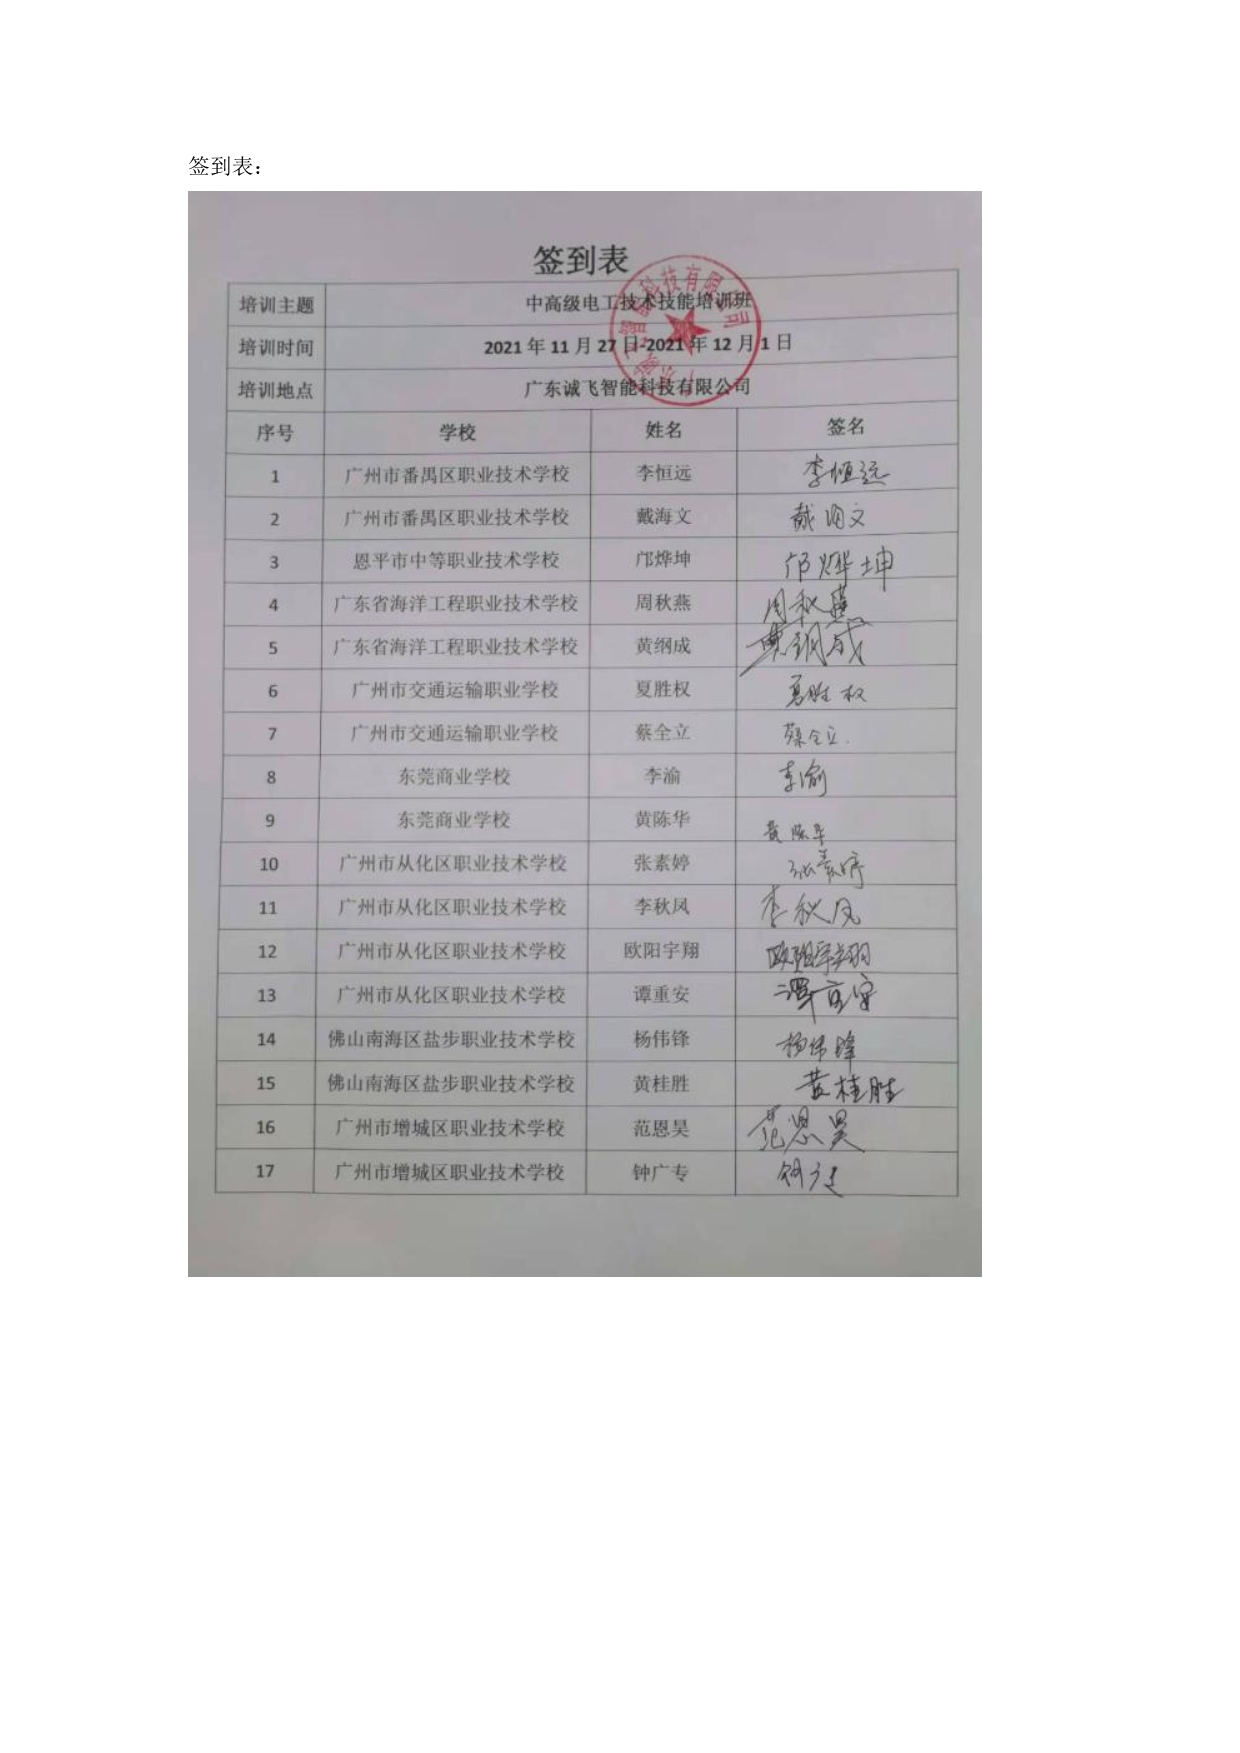 签到表：
签到表
培训主题 中高级电工技术技能培训班
培训时间 2021 年 11 月 27 日-2021 年 12 月 1 日
培训地点 广东诚飞智能科技有限公司
序号 学校 姓名 签名
1 广州市番禺区职业技术学校 李恒远 李恒远
2 广州市番禺区职业技术学校 戴海文 戴海文
3 恩平市中等职业技术学校 邝烨坤 邝烨坤
4 广东省海洋工程职业技术学校 周秋燕 周秋燕
5 广东省海洋工程职业技术学校 黄纲成 黄纲成
6 广州市交通运输职业学校 夏胜权 夏胜权
7 广州市交通运输职业学校 蔡全立 蔡全立.
8 东莞商业学校 李渝 李渝
9 东莞商业学校 黄陈华 黄陈华
10 广州市从化区职业技术学校 张素婷 张素婷
11 广州市从化区职业技术学校 李秋凤 李秋凤
12 广州市从化区职业技术学校 欧阳宇翔 欧阳宇翔
13 广州市从化区职业技术学校 谭重安 谭重安
14 佛山南海区盐步职业技术学校 杨伟锋 杨伟锋
15 佛山南海区盐步职业技术学校 黄桂胜 黄桂胜
16 广州市增城区职业技术学校 范恩昊 范恩昊
17 广州市增城区职业技术学校 钟广专 钟广专